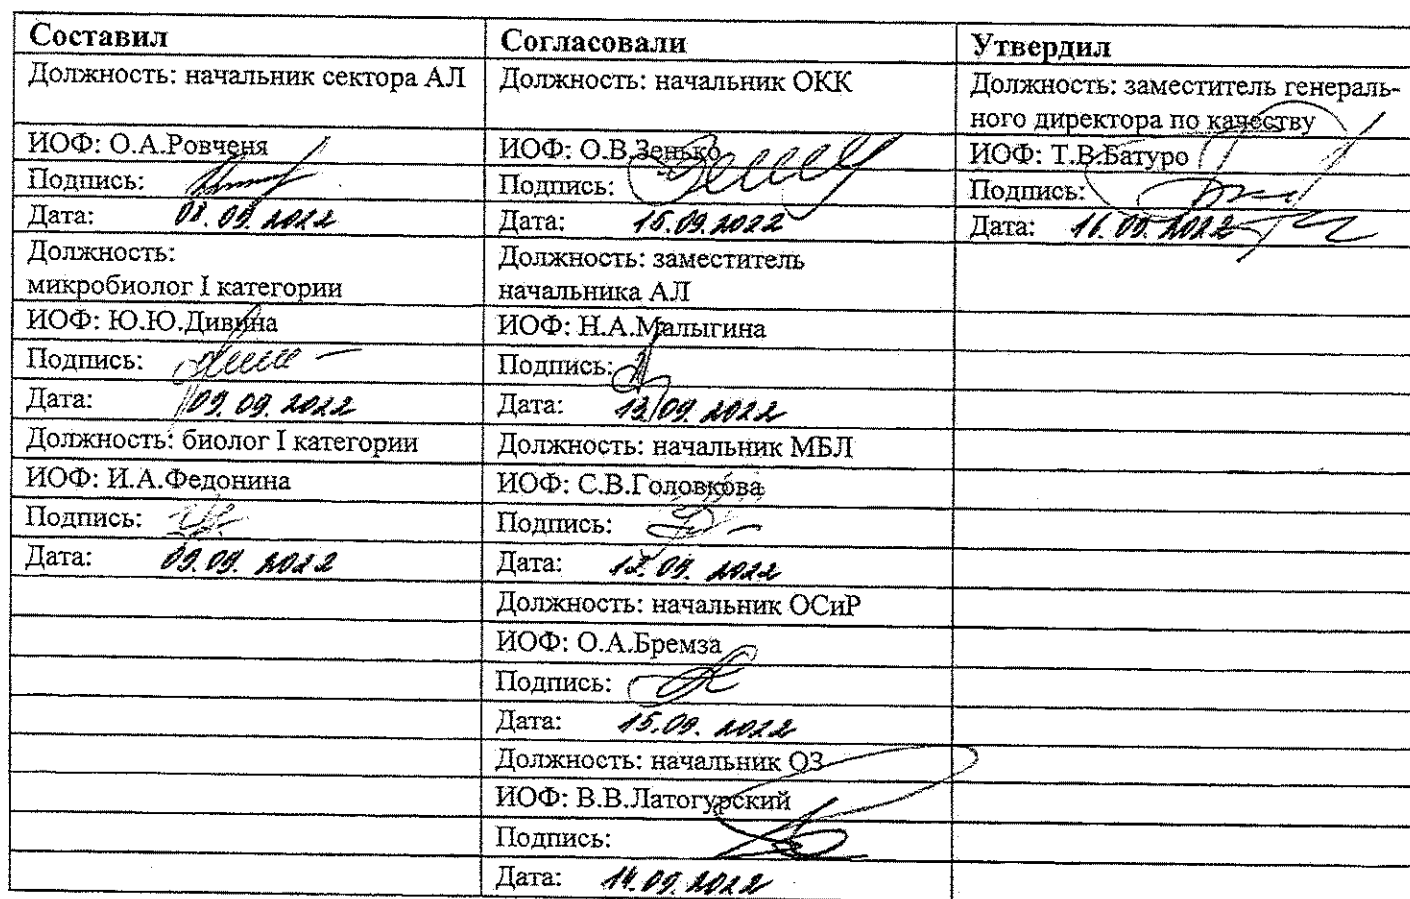 Составил
Согласовали
Утвердил
Должность: начальник сектора АЛ
Должность: начальник ОКК
Должность: заместитель генераль-
ного директора по качеству
ИОФ: О.А.Ровченя
ИОФ: О.В.Зенько
ИОФ: Т.В.Батуро
Подпись:
Подпись:
Подпись:
Дата: 08.09.2022
Дата: 15.09.2022
Дата: 16.09.2022
Должность:
микробиолог I категории
Должность: заместитель
начальника АЛ
ИОФ: Ю.Ю.Дивина
ИОФ: Н.А.Малыгина
Подпись:
Подпись:
Дата: 09.09.2022
Дата: 13.09.2022
Должность: биолог I категории
Должность: начальник МБЛ
ИОФ: И.А.Федонина
ИОФ: С.В.Головкова
Подпись:
Подпись:
Дата: 09.09.2022
Дата: 12.09.2022
Должность: начальник ОСиР
ИОФ: О.А.Бремза
Подпись:
Дата: 15.09.2022
Должность: начальник ОЗ
ИОФ: В.В.Латогурский
Подпись:
Дата: 14.09.2022